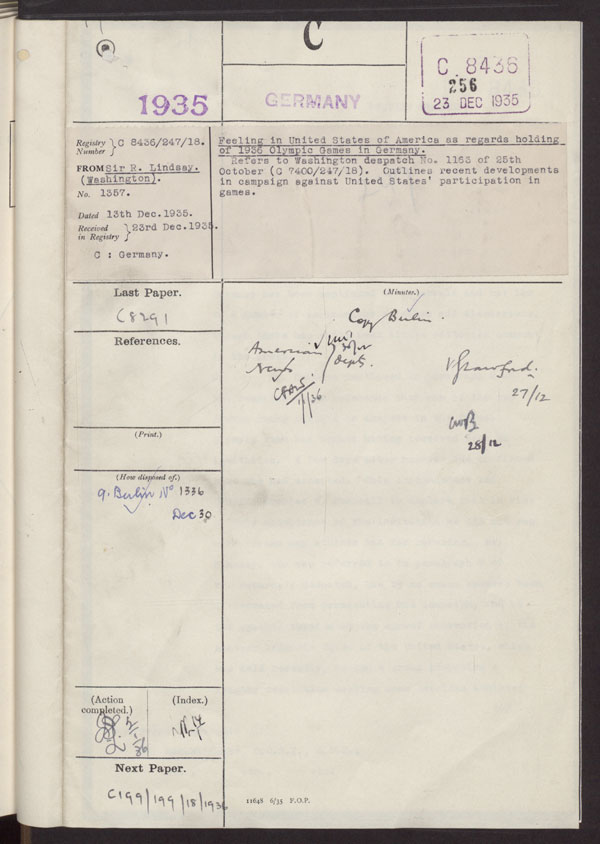 C
C 8436
256
23 DEC 1935
1935
GERMANY
Registry Number } C 8436/247/18.
FROM Sir R. Lindsay.
(Washington).
No. 1357.
Dated 13th Dec. 1935.
Received in Registry } 23rd Dec. 1935.
C : Germany.
Feeling in United States of America as regards holding
of 1936 Olympic Games in Germany.
Refers to Washington despatch No. 1163 of 25th
October (C 7400/247/18). Outlines recent developments
in campaign against United States' participation in
games.
Last Paper.
C8291
References.
(Print.)
(How disposed of.)
Berlin No 1336
Dec 30
(Action completed.)
(Index.)
Next Paper.
C199/199/18/1936
(Minutes.)
Copy Berlin.
American
Dept.
News
27/12
28/12
11648 6/35 F.O.P.